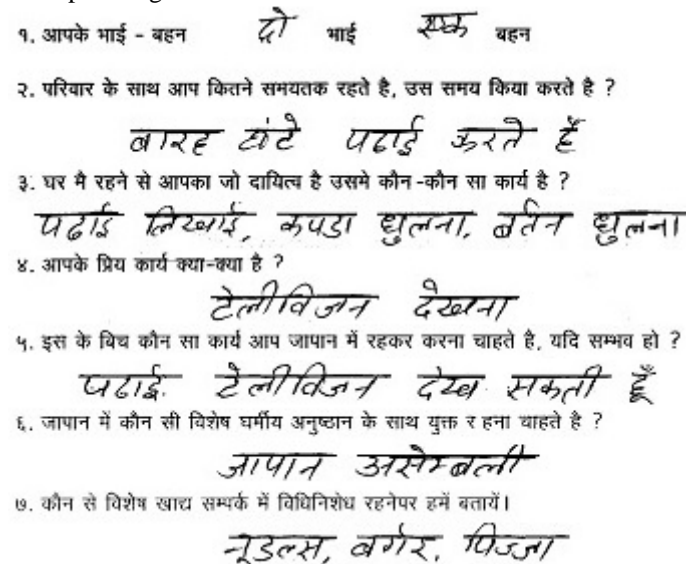 १. आपके भाई - बहन दो भाई एक बहन
२. परिवार के साथ आप कितने समयतक रहते है, उस समय किया करते है ?
बारह घंटे पढाई करते हैं
३. घर मै रहने से आपका जो दायित्व है उसमे कौन-कौन सा कार्य है ?
पढाई लिखाई, कपडा धुलना, बर्तन धुलना
४. आपके प्रिय कार्य क्या-क्या है ?
टेलीविजन देखना
५. इस के बिच कौन सा कार्य आप जापान में रहकर करना चाहते है, यदि सम्भव हो ?
पढाई. टेलीविजन देख सकती हूँ
६. जापान में कौन सी विशेष घर्मीय अनुष्ठान के साथ युक्त र हना चाहते है ?
जापान असेम्बली
७. कौन से विशेष खाद्य सम्पर्क में विधिनिशेध रहनेपर हमें बतायें।
नूडल्स, बर्गर, पिज्जा